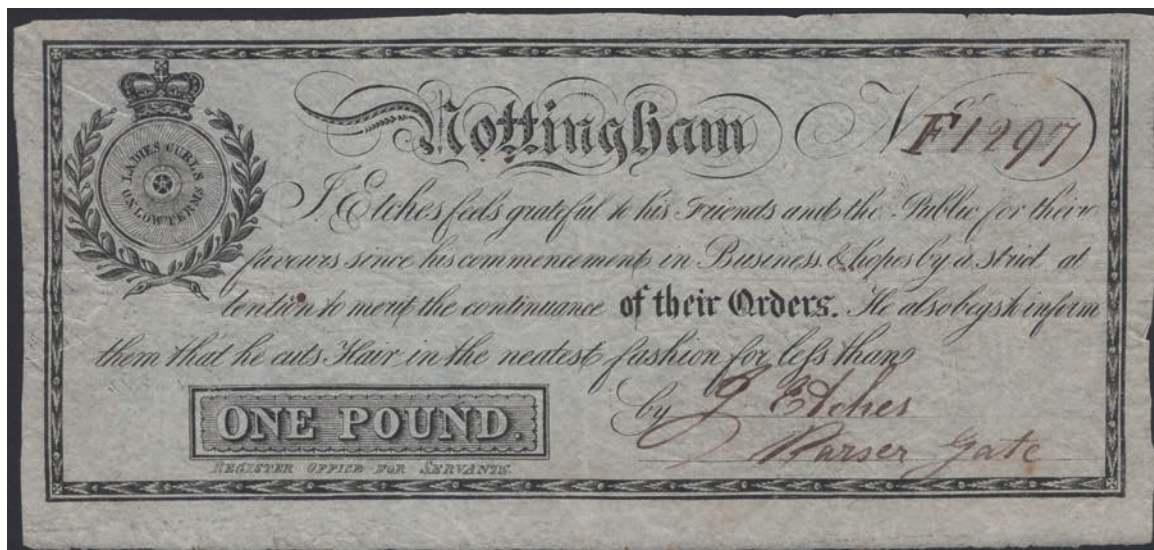 LADIES CURLS
ON LOW TERMS
Nottingham No. F1297
J. Etches feels grateful to his Friends and the Public for their
favours since his commencement in Business & hopes by a strict at
tention to merit the continuance of their Orders. He also begs to inform
them that he cuts Hair in the neatest fashion for less than
by J Etches
ONE POUND.
Parser Gate
REGISTER OFFICE FOR SERVANTS.